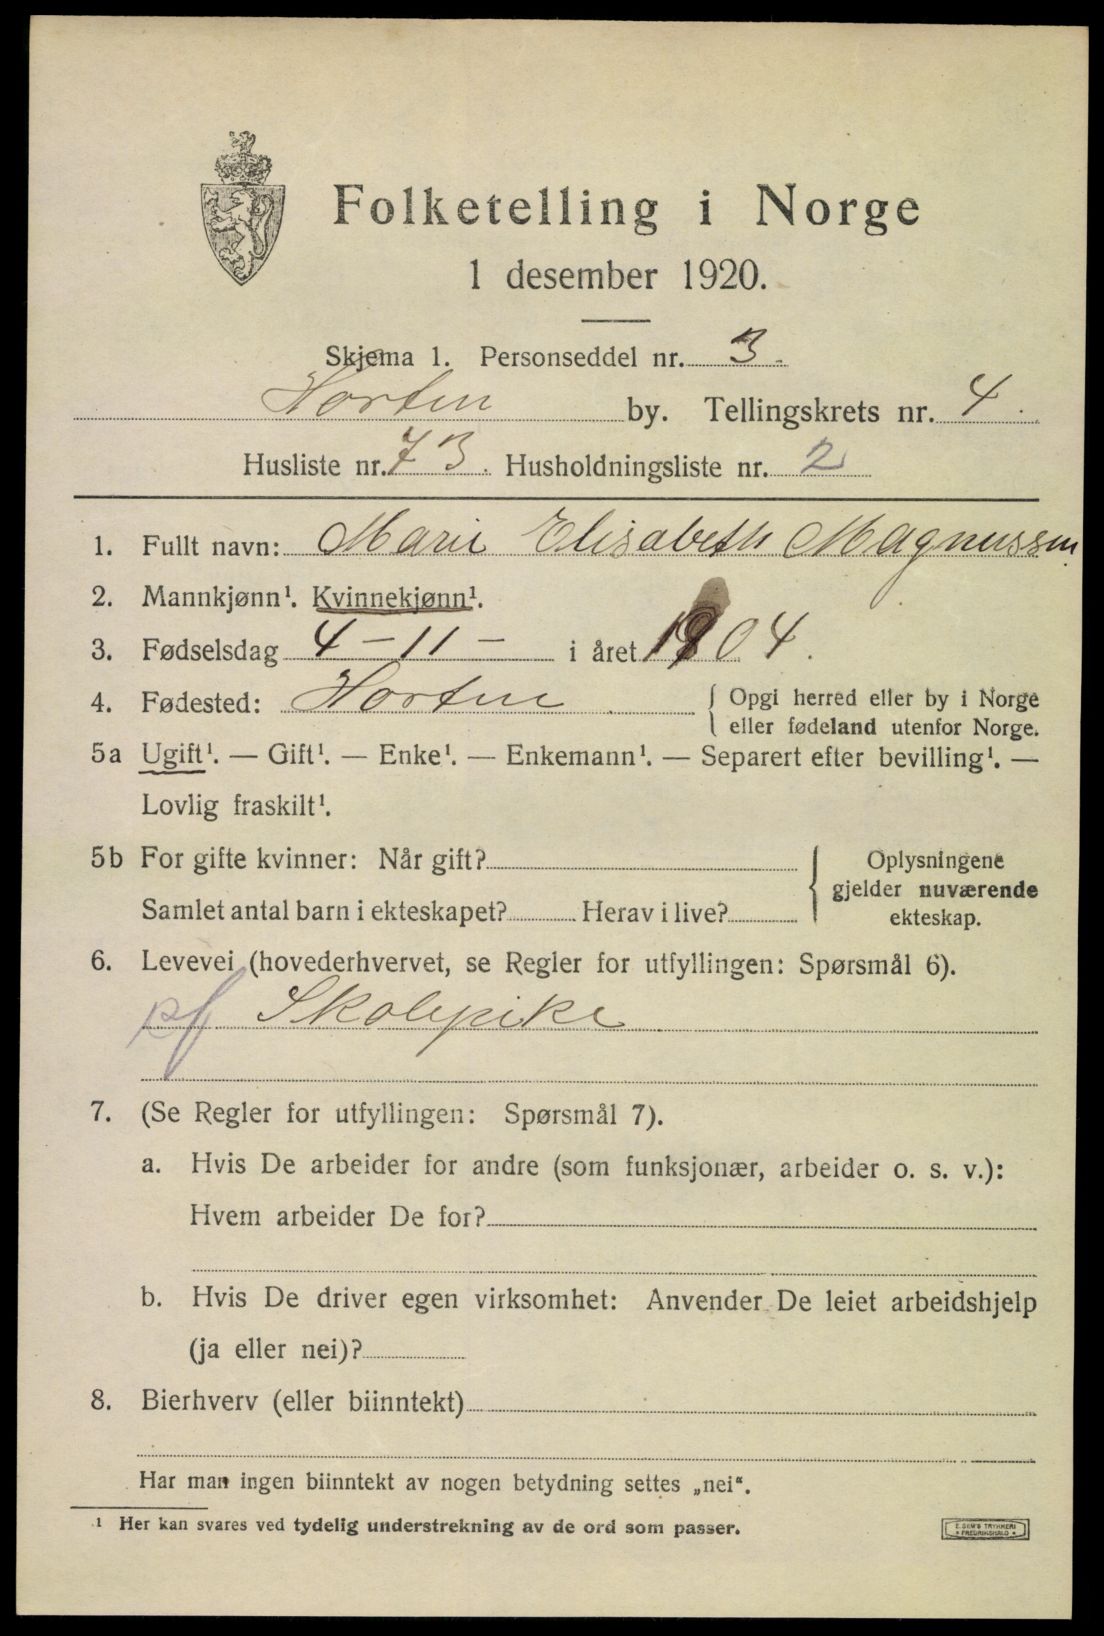 Folketelling i Norge
1 desember 1920.
Skjema 1. Personseddel nr. 3.
Horten by. Tellingskrets nr. 4.
Husliste nr. 73. Husholdningsliste nr. 2
1. Fullt navn: Marie Elisabeth Magnussen
2. Mannkjønn¹. Kvinnekjønn¹.
3. Fødselsdag 4-11- i året 1904.
4. Fødested: Horten { Opgi herred eller by i Norge
eller fødeland utenfor Norge.
5a Ugift¹. — Gift¹. — Enke¹. — Enkemann¹. — Separert efter bevilling¹. —
Lovlig fraskilt¹.
5b For gifte kvinner: Når gift? { Oplysningene
gjelder nuværende
Samlet antal barn i ekteskapet? Herav i live? ekteskap.
6. Levevei (hovederhvervet, se Regler for utfyllingen: Spørsmål 6).
pf Skolepike
7. (Se Regler for utfyllingen: Spørsmål 7).
a. Hvis De arbeider for andre (som funksjonær, arbeider o. s. v.):
Hvem arbeider De for?
b. Hvis De driver egen virksomhet: Anvender De leiet arbeidshjelp
(ja eller nei)?
8. Bierhverv (eller biinntekt)
Har man ingen biinntekt av nogen betydning settes „nei“.
¹ Her kan svares ved tydelig understrekning av de ord som passer.
E. SEM'S TRYKKERI
FREDRIKSHALD